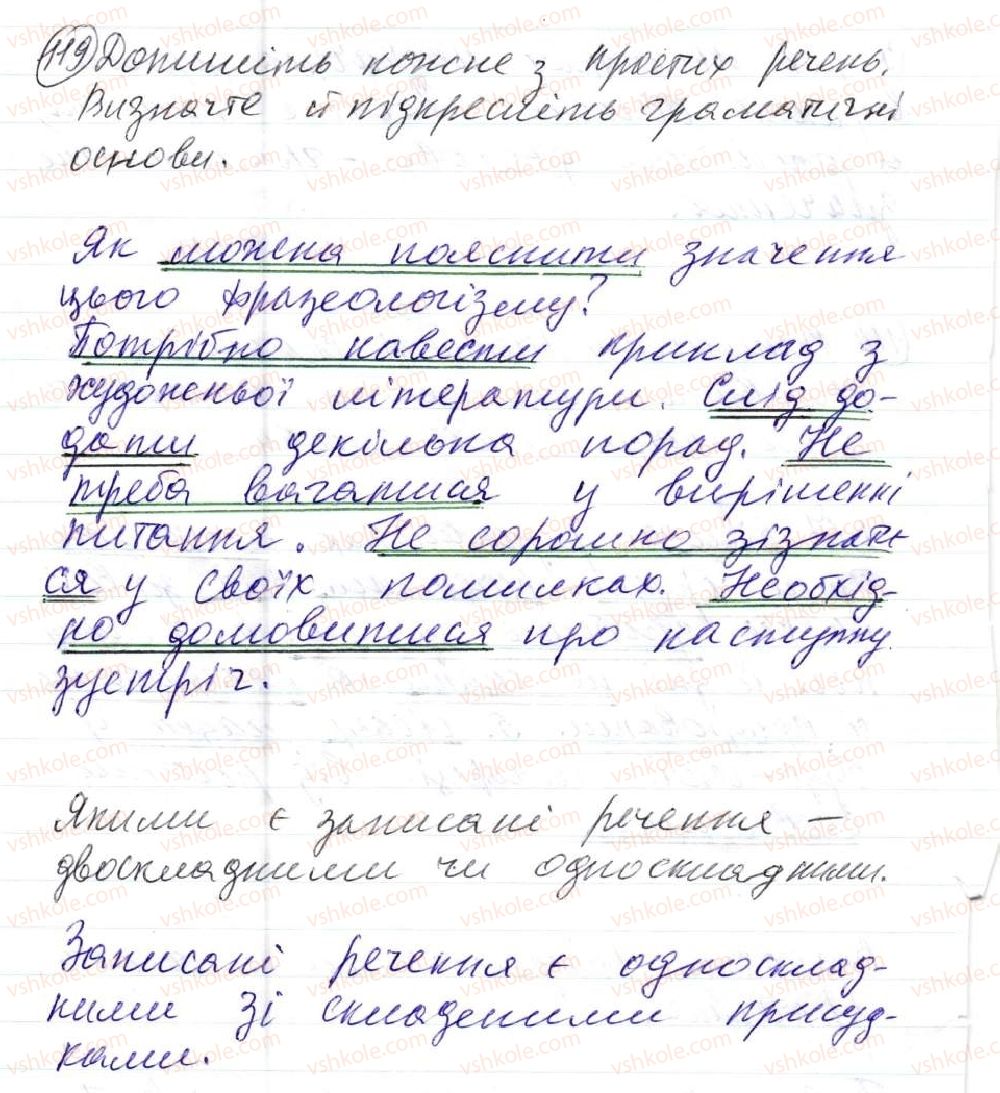 119 Допишіть кожне з простих речень.
Визначте й підкресліть граматичні
основи.
Як можна пояснити значення
цього фразеологізму?
Потрібно навести приклад з
художньої літератури. Слід до-
дати декілька порад. Не
треба вагатися у вирішенні
питання. Не соромно зізнати
ся у своїх помилках. Необхід-
но домовитися про наступну
зустріч.
Якими є записані речення –
двоскладними чи односкладними.
Записані речення є односклад-
ними зі складеними присуд-
ками.